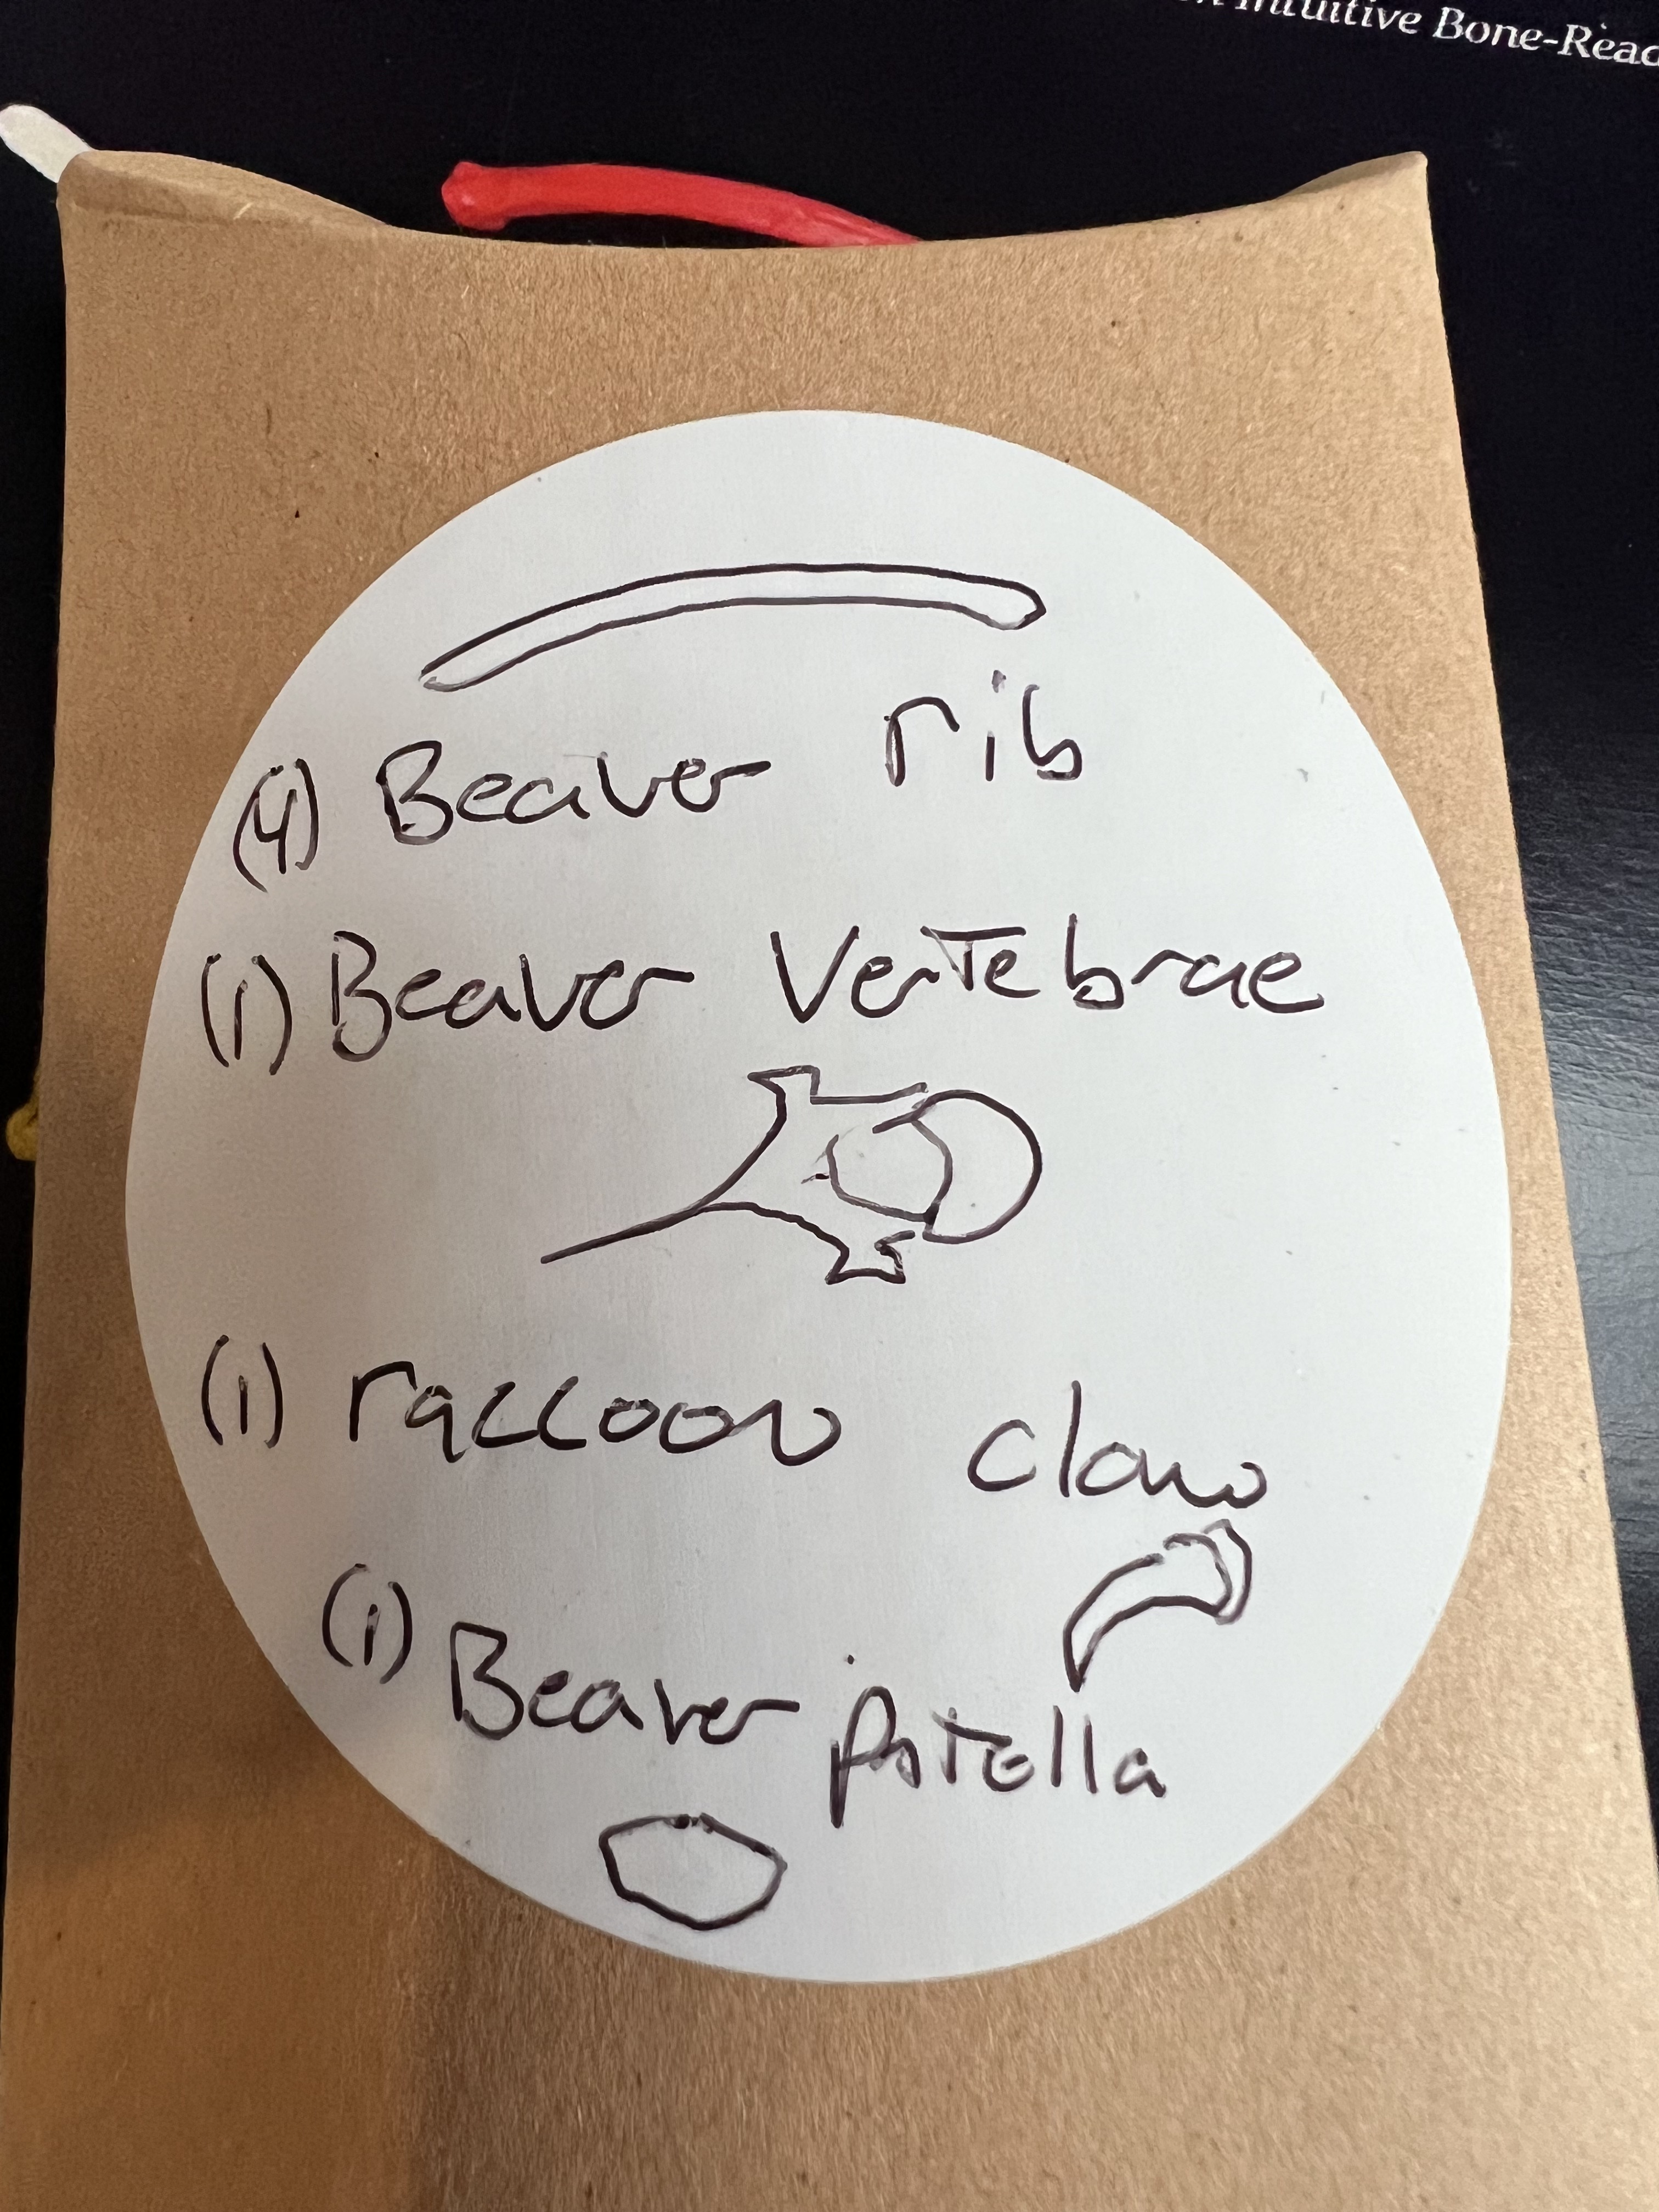 Intuitive Bone-Read
(4) Beaver rib
(1) Beaver Vertebrae
(1) raccoon claw
(1) Beaver patella